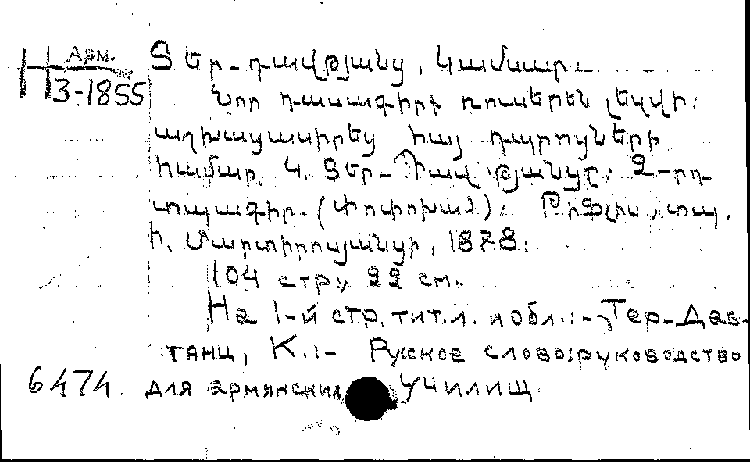 Арм.
Н 3-1855
Տեր-Դավթյանց, Կամսար.
Նոր դասագիրք ռուսերեն լեզվի:
աշխատասիրեց հայ դպրոցների
համար Կ. Տեր-Դավթյանցը: 2-րդ
տպագիր. (փոփոխած): Թիֆլիս, տպ.
Ի. Մարտիրոսյանցի, 1878:
104 стр; 22 см.
На 1-й стр. тит. л. и обл.:- Тер-Дав-
танц, К.:- Русское словоруководство
6474. для армянских училищ.